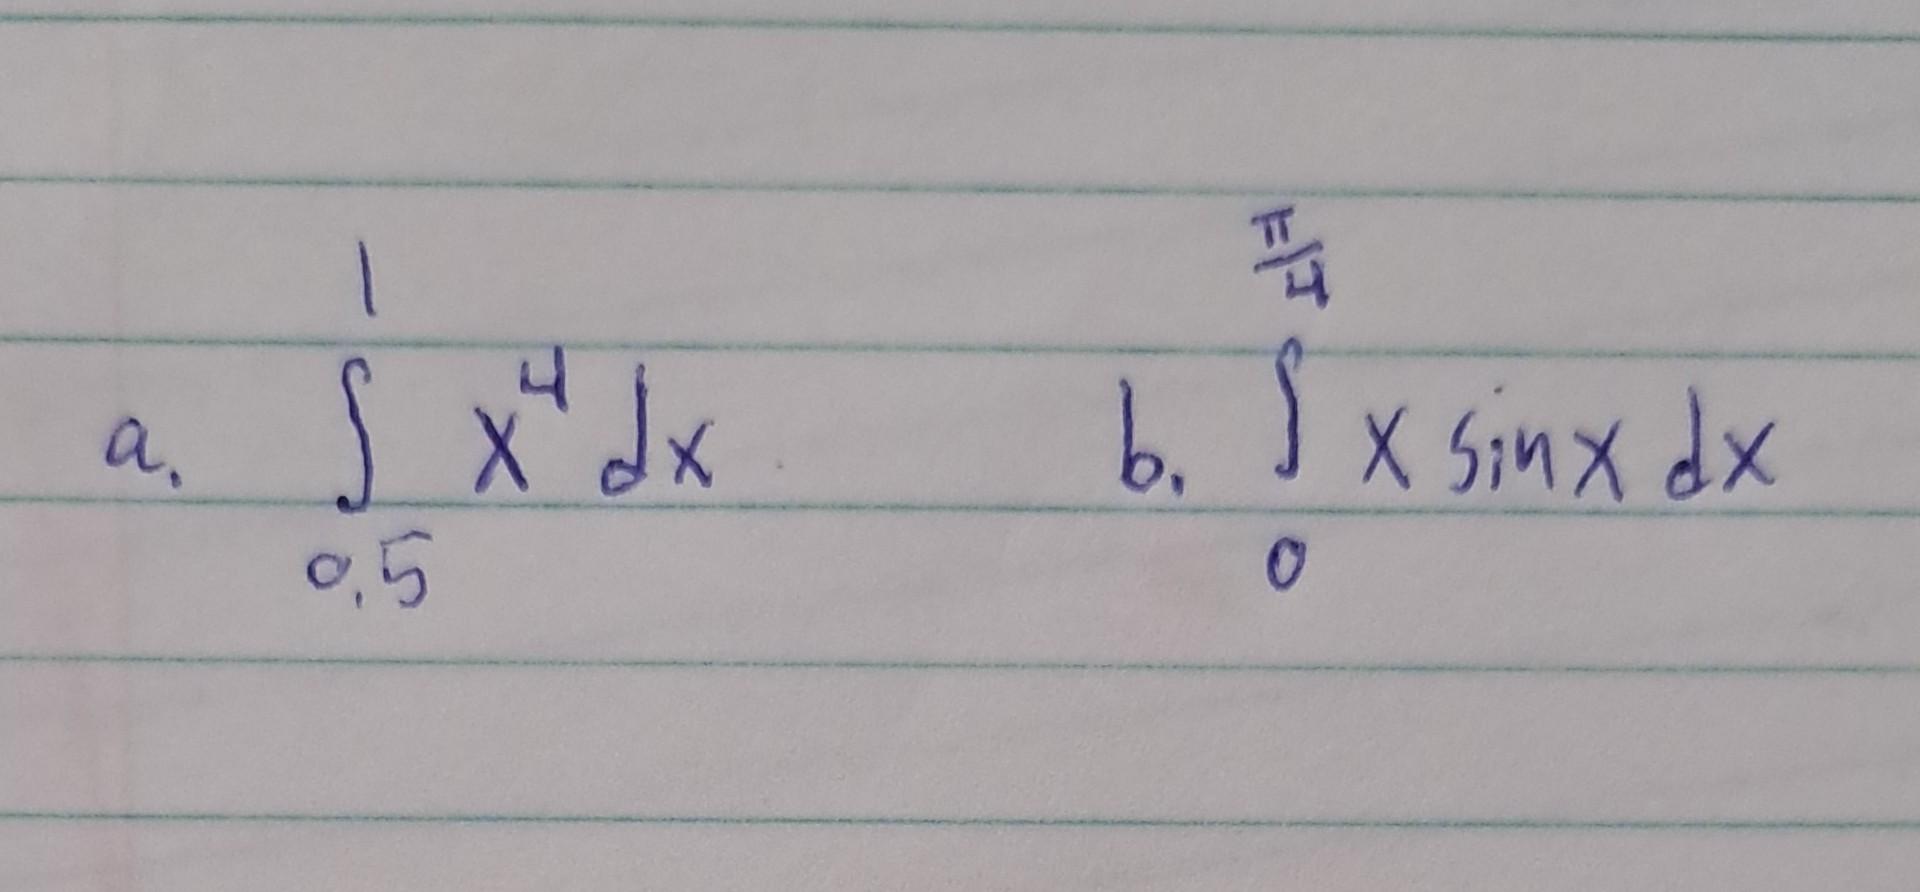 a. ∫_{0.5}^{1} x^4 dx b. ∫_{0}^{π/4} x sin x dx